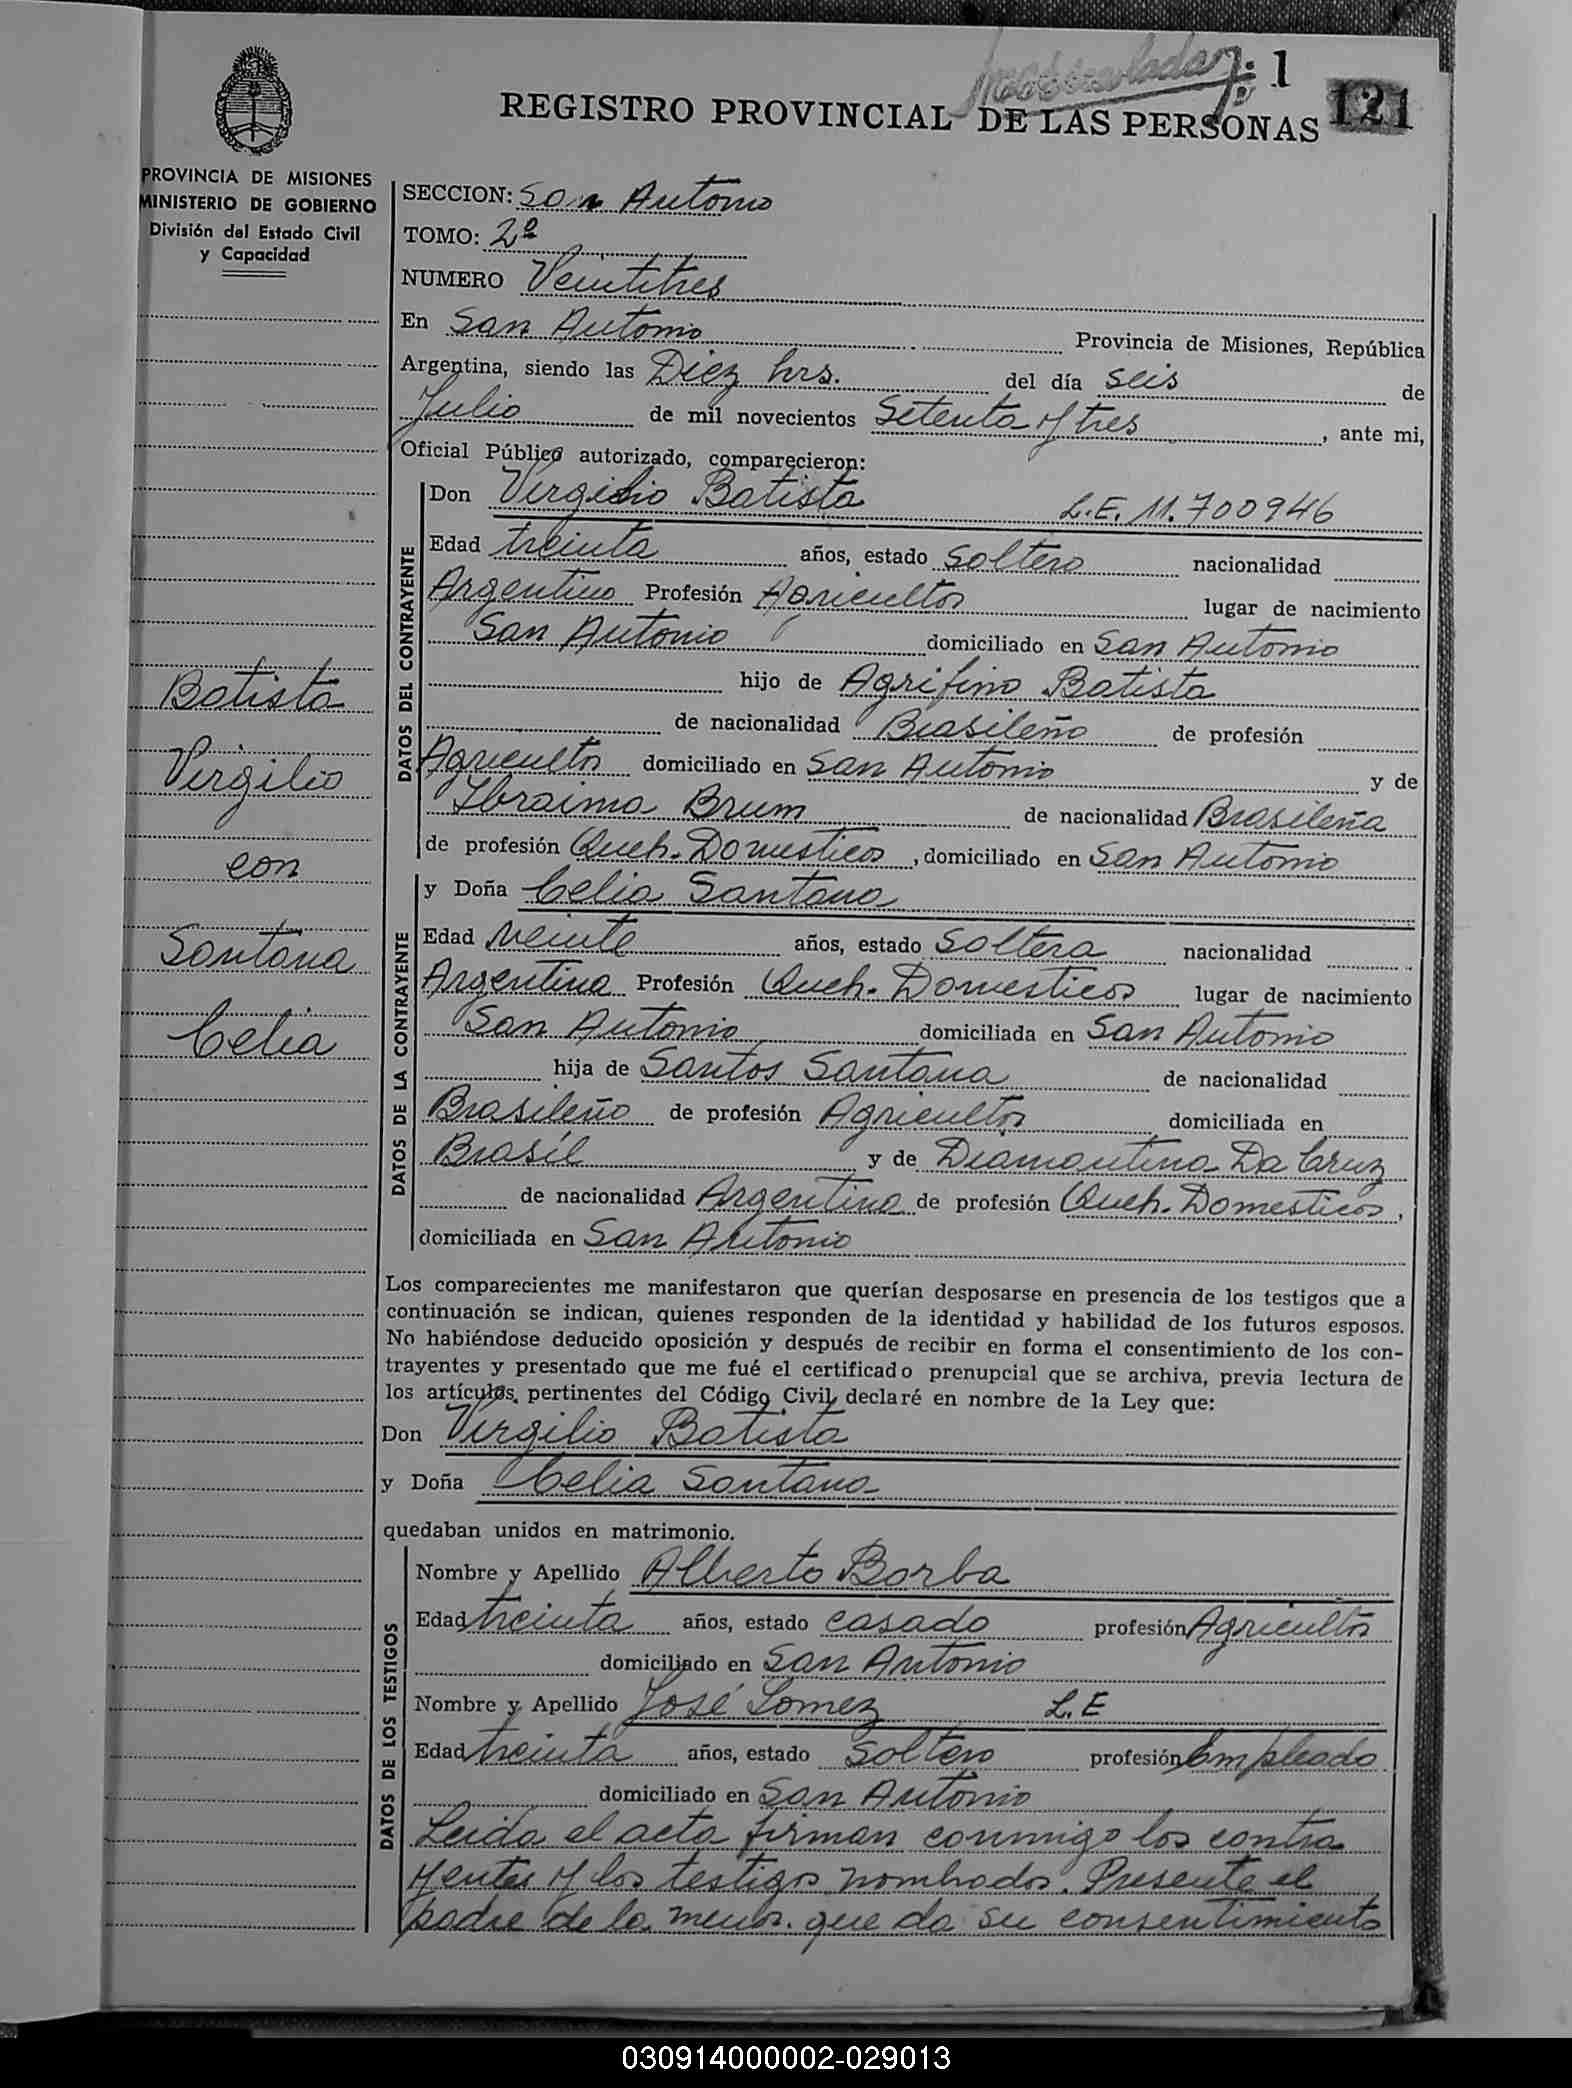 : 1
121
REGISTRO PROVINCIAL DE LAS PERSONAS
PROVINCIA DE MISIONES
MINISTERIO DE GOBIERNO
División del Estado Civil
y Capacidad
Batista
Virgilio
con
Santana
Celia
SECCION: San Antonio
TOMO: 2º
NUMERO Veintitres
En San Antonio Provincia de Misiones, República
Argentina, siendo las Diez hrs. del día seis de
Julio de mil novecientos Setenta y tres, ante mi,
Oficial Público autorizado, comparecieron:
DATOS DEL CONTRAYENTE
Don Virgilio Batista L.E. 11.700946
Edad treinta años, estado Soltero nacionalidad
Argentino Profesión Agricultor lugar de nacimiento
San Antonio domiciliado en San Antonio
hijo de Agrifino Batista
de nacionalidad Brasileño de profesión
Agricultor domiciliado en San Antonio y de
Ibraima Brum de nacionalidad Brasileña
de profesión Queh. Domesticos, domiciliado en San Antonio
DATOS DE LA CONTRAYENTE
y Doña Celia Santana
Edad veinte años, estado Soltera nacionalidad
Argentina Profesión Queh. Domesticos lugar de nacimiento
San Antonio domiciliada en San Antonio
hija de Santos Santana de nacionalidad
Brasileño de profesión Agricultor domiciliada en
Brasil y de Diamantina Da Cruz
de nacionalidad Argentina de profesión Queh. Domesticos,
domiciliada en San Antonio
Los comparecientes me manifestaron que querían desposarse en presencia de los testigos que a
continuación se indican, quienes responden de la identidad y habilidad de los futuros esposos.
No habiéndose deducido oposición y después de recibir en forma el consentimiento de los con-
trayentes y presentado que me fué el certificado prenupcial que se archiva, previa lectura de
los artículos pertinentes del Código Civil declaré en nombre de la Ley que:
Don Virgilio Batista
y Doña Celia Santana
quedaban unidos en matrimonio.
DATOS DE LOS TESTIGOS
Nombre y Apellido Alberto Borba
Edad treinta años, estado casado profesión Agricultor
domiciliado en San Antonio
Nombre y Apellido José Gomez L.E
Edad treinta años, estado Soltero profesión Empleado
domiciliado en San Antonio
Leida el acta firman conmigo los contra
yentes y los testigos nombrados. Presente el
padre de la menor que da su consentimiento
030914000002-029013